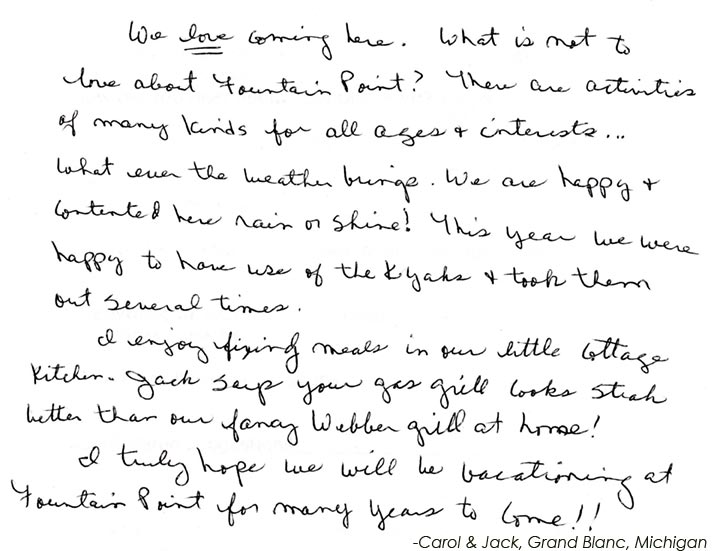 We love coming here. What is not to
love about Fountain Point? There are activities
of many kinds for all ages + interests...
what ever the weather brings. We are happy +
contented here rain or shine! This year we were
happy to have use of the Kyaks + took them
out several times.
I enjoy fixing meals in our little cottage
kitchen. Jack says your gas grill cooks steak
better than our fancy Webber grill at home!
I truly hope we will be vacationing at
Fountain Point for many years to come!!
-Carol & Jack, Grand Blanc, Michigan